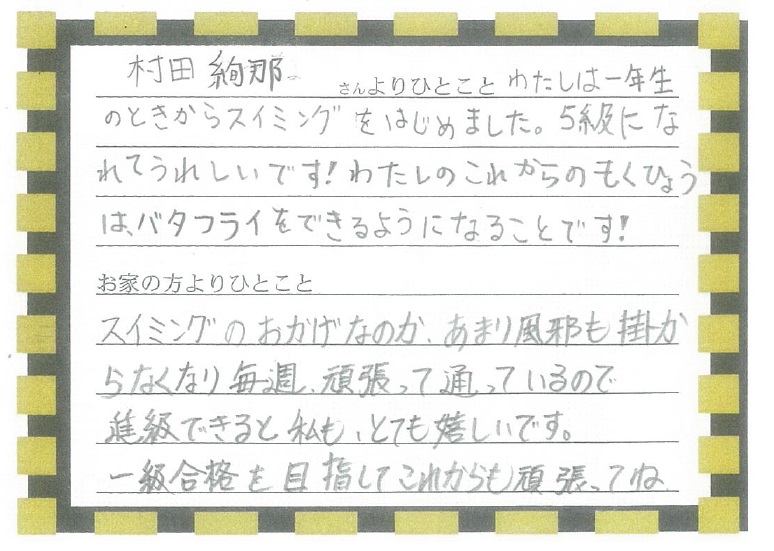 村田 絢那 さんよりひとこと わたしは一年生
のときからスイミングをはじめました。5級にな
れてうれしいです!わたしのこれからのもくひょう
は、バタフライをできるようになることです!
お家の方よりひとこと
スイミングのおかげなのか、あまり風邪も掛か
らなくなり毎週、頑張って通っているので
進級できると私も、とても嬉しいです。
一級合格を目指してこれからも頑張ってね